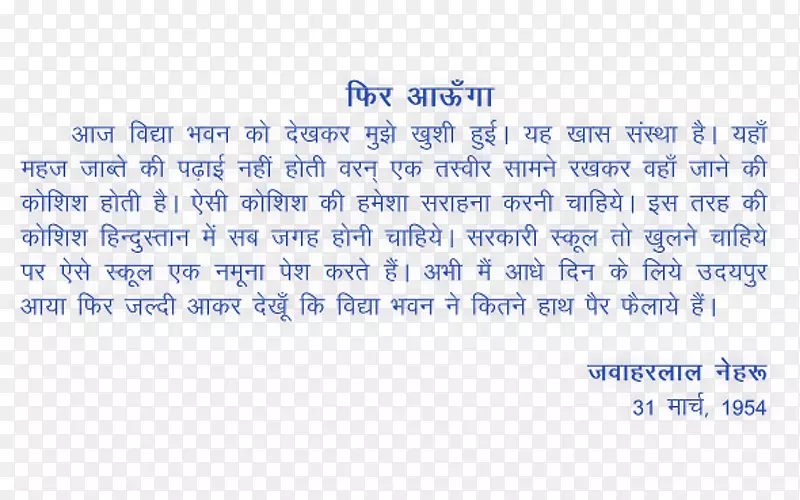 फिर आऊँगा
आज विद्या भवन को देखकर मुझे खुशी हुई। यह खास संस्था है। यहाँ
महज जाब्ते की पढ़ाई नहीं होती वरन् एक तस्वीर सामने रखकर वहाँ जाने की
कोशिश होती है। ऐसी कोशिश की हमेशा सराहना करनी चाहिये। इस तरह की
कोशिश हिन्दुस्तान में सब जगह होनी चाहिये। सरकारी स्कूल तो खुलने चाहिये
पर ऐसे स्कूल एक नमूना पेश करते हैं। अभी मैं आधे दिन के लिये उदयपुर
आया फिर जल्दी आकर देखूँ कि विद्या भवन ने कितने हाथ पैर फैलाये हैं।
जवाहरलाल नेहरू
31 मार्च, 1954